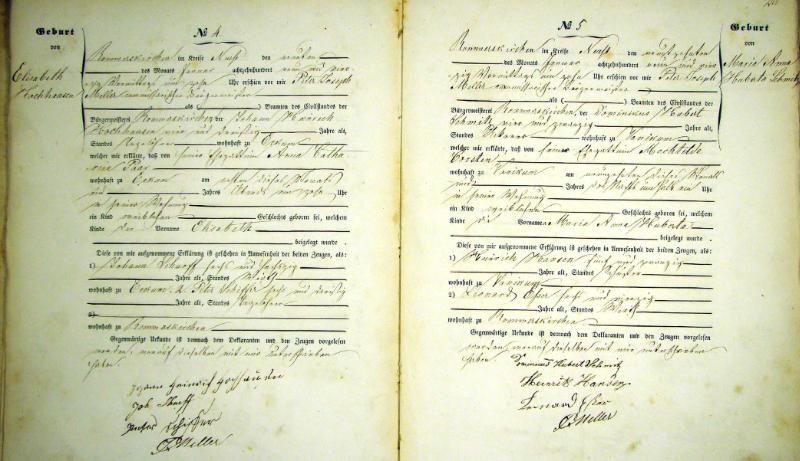 Geburt
von
Elisabeth
Hochhausen
№ 4.
Rommerskirchen im Kreise Neuß den
des Monats Januar achtzehnhundert neun und vier
zig Vormittags um zehn Uhr erschien vor mir Peter Joseph
Meller commissarischer Bürgermeister
als Beamten des Civilstandes der
Bürgermeisterei Rommerskirchen der Johann Heinrich
Hochhausen vier und dreißig Jahre alt,
Standes Tagelöhner wohnhaft zu Eckum
welcher mir erklärte, daß von seiner Ehegattin Anna Catha
rina
wohnhaft zu Eckum am ersten dieses Monats
und Jahres Abends um zehn Uhr
in seiner Wohnung
ein Kind weiblichen Geschlechts geboren sei, welchem
Kinde die Vorname Elisabeth
beigelegt wurde.
Diese von mir aufgenommene Erklärung ist geschehen in Anwesenheit der beiden Zeugen, als:
1) Johann Scharff sechs und sechszig
Jahre alt, Standes
wohnhaft zu Eckum. 2. Peter Schiffer sechs und dreißig
Jahre alt, Standes Tagelöhner
2)
wohnhaft zu Rommerskirchen
Gegenwärtige Urkunde ist demnach dem Deklaranten und den Zeugen vorgelesen
worden, worauf dieselben mit mir unterschrieben
haben.
Johann Heinrich Hochhausen
Joh Scharff
Peter Schiffer
Meller
№ 5
Rommerskirchen im Kreise Neuß den neunzehnten
des Monats Januar achtzehnhundert neun und vier
zig Vormittags um zehn Uhr erschien vor mir Peter Joseph
Meller commissarischer Bürgermeister
als Beamten des Civilstandes der
Bürgermeisterei Rommerskirchen, der Dominicus Hubert
Schmitz vier und zwanzig Jahre alt,
Standes wohnhaft zu Vanikum
welcher mir erklärte, daß von seiner Ehegattin Mechtilde
Corsten
wohnhaft zu Vanikum am neunzehnten dieses Monats
und Jahres des Nachts um halb ein Uhr
in seiner Wohnung
ein Kind weiblichen Geschlechts geboren sei, welchem
Kinde die Vorname Maria Anna Huberta
beigelegt wurde.
Diese von mir aufgenommene Erklärung ist geschehen in Anwesenheit der beiden Zeugen, als:
1) Heinrich Hansen fünf und zwanzig
Jahre alt, Standes
wohnhaft zu Vanikum
2) Leonard Esser sechs und
Jahre alt, Standes
wohnhaft zu Rommerskirchen
Gegenwärtige Urkunde ist demnach dem Deklaranten und den Zeugen vorgelesen
worden, worauf dieselben mit mir unterschrieben
haben.
Dominicus Hubert Schmitz
Henrich Hansen
Lernard Esser
Meller
Geburt
von
Maria Anna
Huberta Schmitz